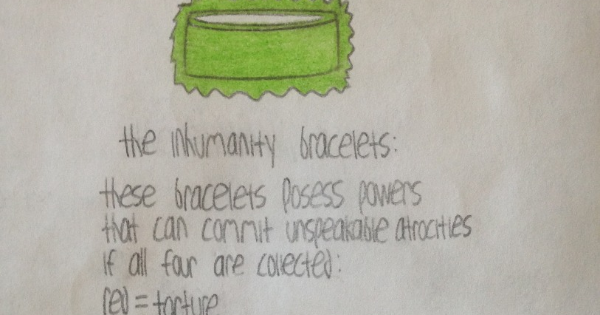 the inhumanity bracelets:
these bracelets posess powers
that can commit unspeakable atrocities
if all four are collected:
red = torture